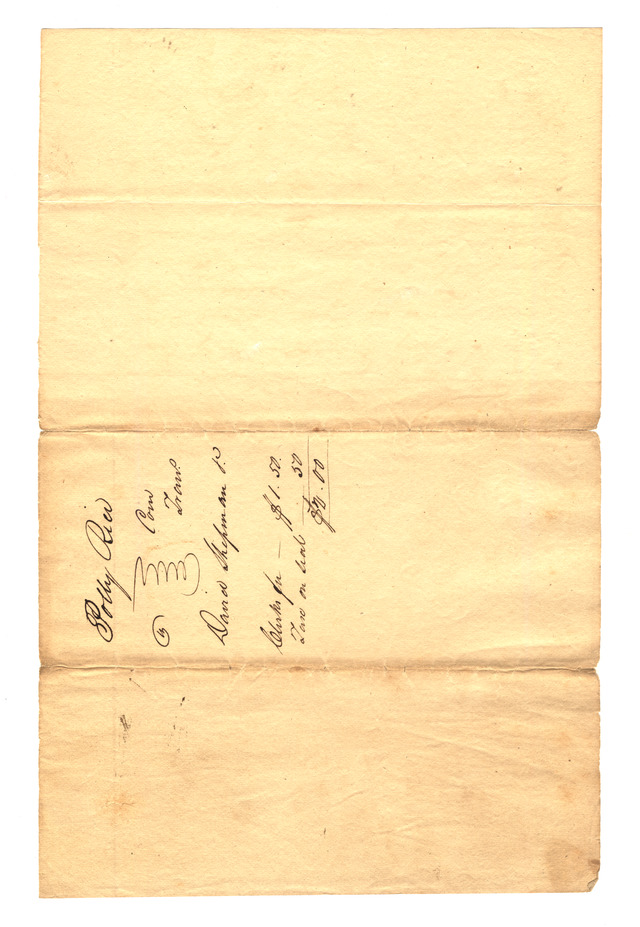 Polly Rice
@ Com
Tran.
David Shipman Jr
Clerks fee — $1.50.
Tax on seal 50
$2.00